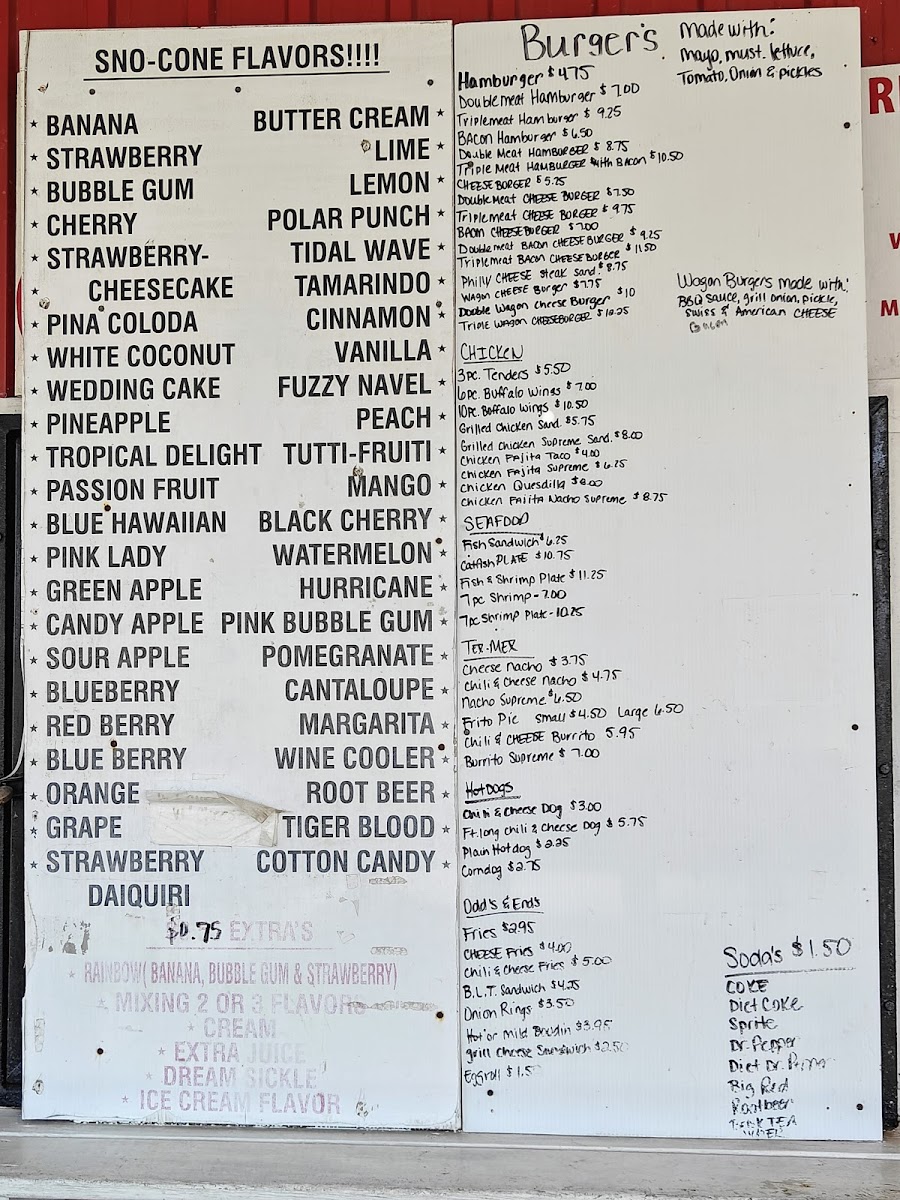 SNO-CONE FLAVORS!!!!
* BANANA BUTTER CREAM *
* STRAWBERRY LIME *
* BUBBLE GUM LEMON *
* CHERRY POLAR PUNCH *
* STRAWBERRY- TIDAL WAVE *
* CHEESECAKE TAMARINDO *
* PINA COLODA CINNAMON *
* WHITE COCONUT VANILLA *
* WEDDING CAKE FUZZY NAVEL *
* PINEAPPLE PEACH *
* TROPICAL DELIGHT TUTTI-FRUITI *
* PASSION FRUIT MANGO *
* BLUE HAWAIIAN BLACK CHERRY *
* PINK LADY WATERMELON *
* GREEN APPLE HURRICANE *
* CANDY APPLE PINK BUBBLE GUM *
* SOUR APPLE POMEGRANATE *
* BLUEBERRY CANTALOUPE *
* RED BERRY MARGARITA *
* BLUE BERRY WINE COOLER *
* ORANGE ROOT BEER *
* GRAPE TIGER BLOOD *
* STRAWBERRY COTTON CANDY *
DAIQUIRI
$0.75 EXTRA'S
* RAINBOW( BANANA, BUBBLE GUM & STRAWBERRY)
* MIXING 2 OR 3 FLAVORS
* CREAM
* EXTRA JUICE
* DREAM SICKLE
* ICE CREAM FLAVOR
Burger's
Made with:
Mayo, must. lettuce,
Tomato, Onion & pickles
Hamburger $4.75
Double meat Hamburger $7.00
Triple meat Hamburger $9.25
BACon Hamburger $6.50
Double Meat HAMBURGER $8.75
Triple Meat HAMBURGER With BACON $10.50
CHEESE BORGER $5.25
Double Meat CHEESE BURGER $7.50
Triple meat CHEESE BURGER $9.75
BACON CHEESE BURGER $7.00
Double meat BACON CHEESE BURGER $9.25
Triple meat BACON CHEESE BURGER $11.50
Philly CHEESE Steak Sand. $8.75
Wagon CHEESE Burger $7.75
Double Wagon Cheese Burger $10
Triple WAGON CHEESEBURGER $12.25
Wagon Burgers made with:
BBQ sauce, grill onion, pickle,
Swiss & American CHEESE
CHICKEN
3pc. Tenders $5.50
6pc. Buffalo Wings $7.00
10pc. Boffalo Wings $10.50
Grilled Chicken Sand. $5.75
Grilled Chicken Supreme Sand. $8.00
Chicken Fajita Taco $4.00
Chicken Fajita Supreme $6.25
Chicken Quesdilla $8.00
Chicken Fajita Nacho Supreme $8.75
SEAFOOD
Fish Sandwich $6.25
Catfish PLATE $10.75
Fish & Shrimp Plate $11.25
7pc Shrimp - 7.00
7pc Shrimp Plate - 10.25
TEX-MEX
Cheese Nacho $3.75
Chili & Cheese Nacho $4.75
Nacho Supreme $6.50
Frito Pie Small $4.50 Large 6.50
Chili & CHEESE Burrito 5.95
Burrito Supreme $7.00
Hot Dogs
Chili & Cheese Dog $3.00
Ft. long Chili & Cheese Dog $5.75
Plain Hot dog $2.25
Corndog $2.75
Odd's & Ends
Fries $2.95
CHEESE Fries $4.00
Chili & Cheese Fries $5.00
B.L.T. Sandwich $4.25
Onion Rings $3.50
Hot or Mild Boudin $3.95
grill Cheese Sandwich $2.50
Eggroll $1.5
Soda's $1.50
COKE
Diet Coke
Sprite
Dr. Pepper
Diet Dr. Pepper
Big Red
Rootbeer
TEA
WATER